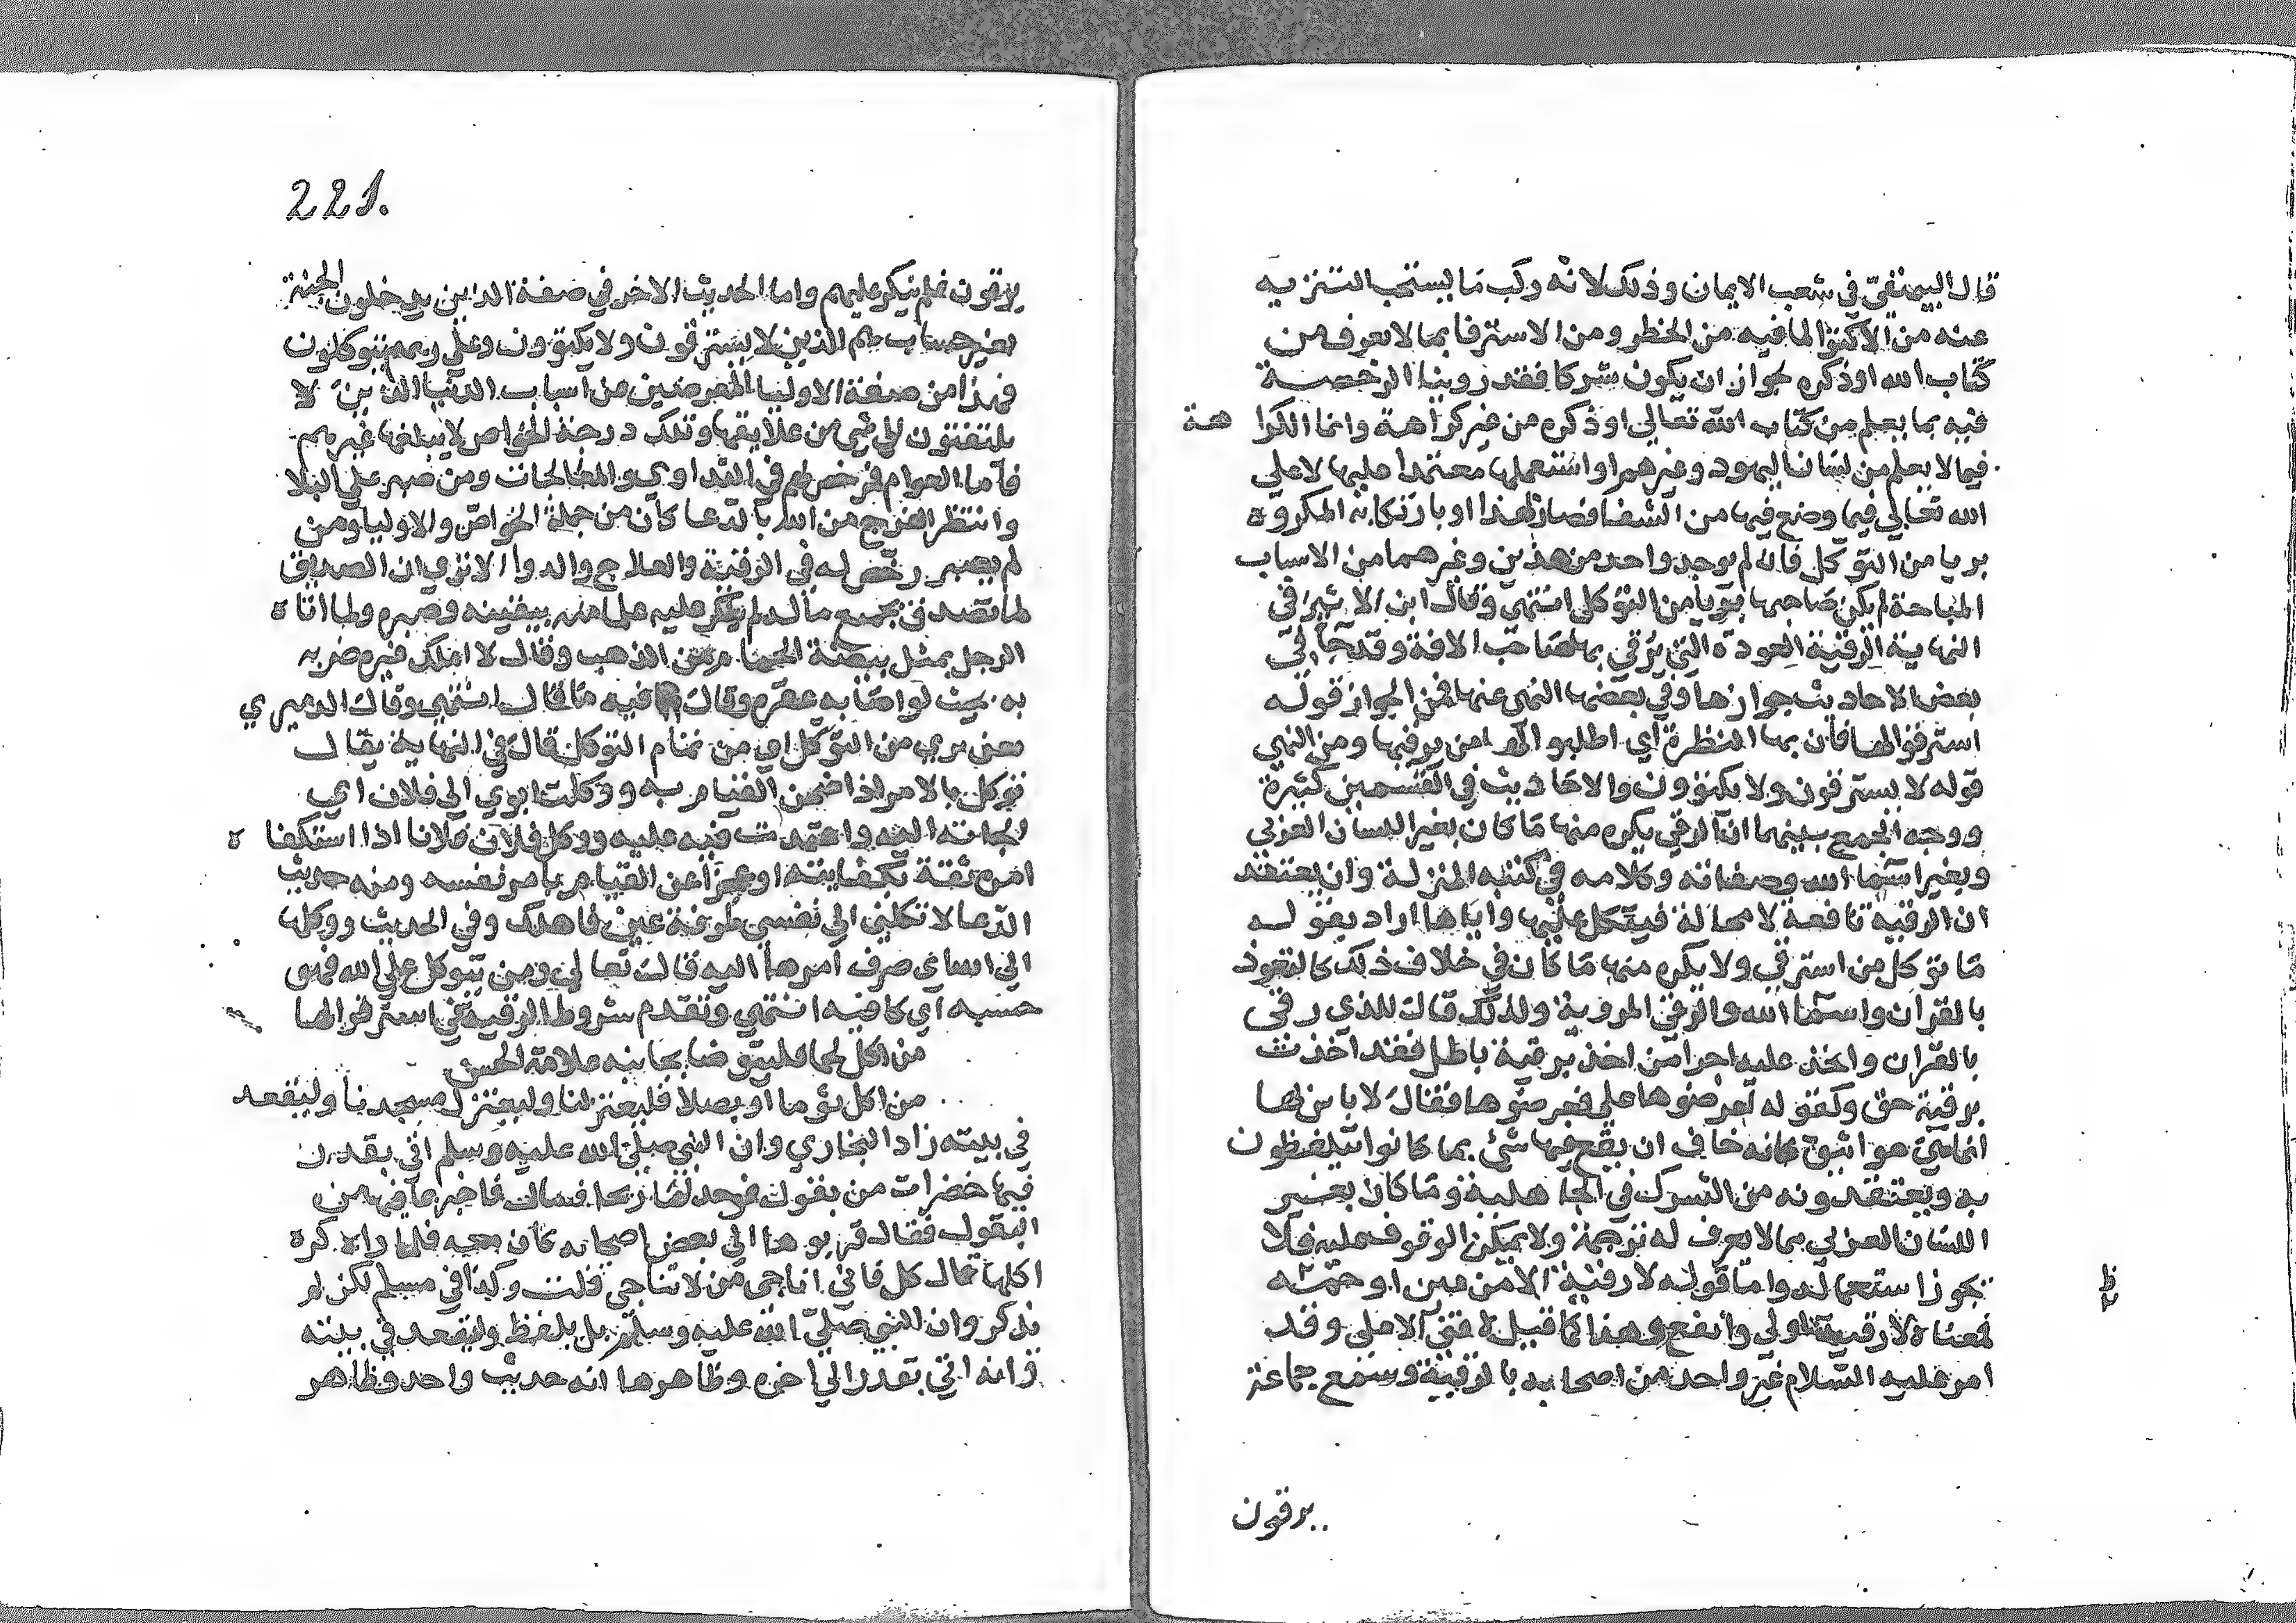 قال البيهقيّ في شعب الايمان وذلك لانه ركب مَا يستحب التنزيه
عنه من الاكتوا لما فيه من الخطر ومن الاسترقا بما لا يعرف من
كتاب الله او ذكره لجواز ان يكون شركا فقد روينا الرخصة
فيه بما يعلم من كتاب الله تعالى او ذكره من غير كراهة وانما الكرا هة
فيما لا يعلم من لسان اليهود وغيرهم او استعملها معتمدا عليها لا علي
الله تعالي فيما وضع فيها من الشفا فصار بهذا او بارتكابه المكروه
بريا من التوكل فان لم يوجد واحد من هذين وغيرهما من الاسباب
المباحة لم يكن صَاحبها بريا من التوكل انتهي وقال ابن الاثير في
النهاية الرقية العوذة التي يُرقي بها صَاحب الافة وقد جا في
بعض الاحاديث جوازها وفي بعضها النهي عنها فمن الجواز قوله
استرقوا لها فان بها النظرة اي اطلبوا لها من يرقيها ومن النهي
قوله لا يسترقون ولا يكتوون والاحاديث في القسمين كثيرة
ووجه الجمع بينهما ان الرقي يكره منها مَا كان بغير اللسان العربي
وبغير اسما الله وصفاته وكلامه في كتبه المنزلة وان يعتقد
ان الرقية نافعة لا محالة فيتكل عليها واياها اراد بقوله
مَا توكل من استرقي ولا يكره منها مَا كان في خلاف ذلك كالتعوذ
بالقران واسما الله والرقي المروية ولذلك قال للذي رقى
بالقران واخذ عليه اجرا من اخذ برقية باطل فقد اخذت
برقية حق وكقوله اعرضوها علي فعرضوها فقال لا باس بها
انما هي مواثيق كانه خاف ان يقع فيها شئ بما كانوا يتلفظون
به ويعتقدونه من الشرك في الجاهلية ومَا كان بغير
اللسان العربي بما لا يعرف له ترجمة ولا يمكن الوقوف عليه فلا
يجوز استعماله واما قوله لا رقية الا من عين او حمة
فمعناه لا رقية اولي وانفع وهذا كما قيل لا فتى الا علي وقد
امر عليه السلام غير واحد من اصحابه بالرقية وسمع بجماعة
ظ
يرقون
221.
يرقون فلم ينكر عليهم واما الحديث الاخر في صفة الذين يدخلون الجنة
بغير حساب هم الذين لا يسترقون ولا يكتوون وعلي ربهم يتوكلون
فهذا من صفة الاوليا المعرضين عن اسباب الدنيا الذين لا
يلتفتون الي شي من علايقها وتلك درجة الخواص لا يبلغها غيرهم
فاما العوام فرخص لهم في التداوي والمعالجات ومن صبر علي البلا
وانتظر الفرج من الله بالدعا كان من جملة الخواصّ والاوليا ومن
لم يصبر رخص له في الرقية والعلاج والدوا الا تري ان الصديق
لما تصدق بجميع ماله لم ينكر عليه علما منه بيقينه وصبره ولما اتاه
الرجل بمثل بيضة الحمامة من الذهب وقال لا املك غيره ضربه
به بحيث لو اصَابه عقره وقال فيه مَا قال انتهي وقال الدميري
معني بري من التوكل اي من تمام التوكل قال في النهاية يقال
توكل بالامر اذا ضمن القيام به ووكلت امري الي فلان اي
الجاته اليه واعتمدت فيه عليه ووكل فلان فلانا اذا استكفا ه
امره ثقة بكفايته او عجزا عن القيام بامر نفسه ومنه حديث
الدعا لا تكلني الي نفسي طرفة عين فاهلك وفي الحديث ووكلها
الي الله اي صرف امرها اليه قال تعالي ومن يتوكل علي الله فهو
حسبه اي كافيه انتهي وتقدم شروط الرقية في استرقوا لها
من اكل لحما فليتوضا بجانبه علامة الحسن
من اكل ثوما او بصلا فليعتزلنا وليعتزل مسجدنا وليقعد
في بيته زاد البخاري وان النبي صلى الله عليه وسلم اتي بقدر
فيها خضرات من بقول فوجد لها ريحا فسال فاخبر بما فيها من
البقول فقال قربوها الي بعض اصحابه كان معه فلما راه كره
اكلها قال كل فاني اناجي من لا تناجي قلت وكذا في مسلم لكن لم
يذكر وان النبي صلىّ الله عليه وسلم بل بلفظ وليقعد في بيته
وانه اتي بقدر الي اخره وظاهرها انه حديث واحد وظاهر